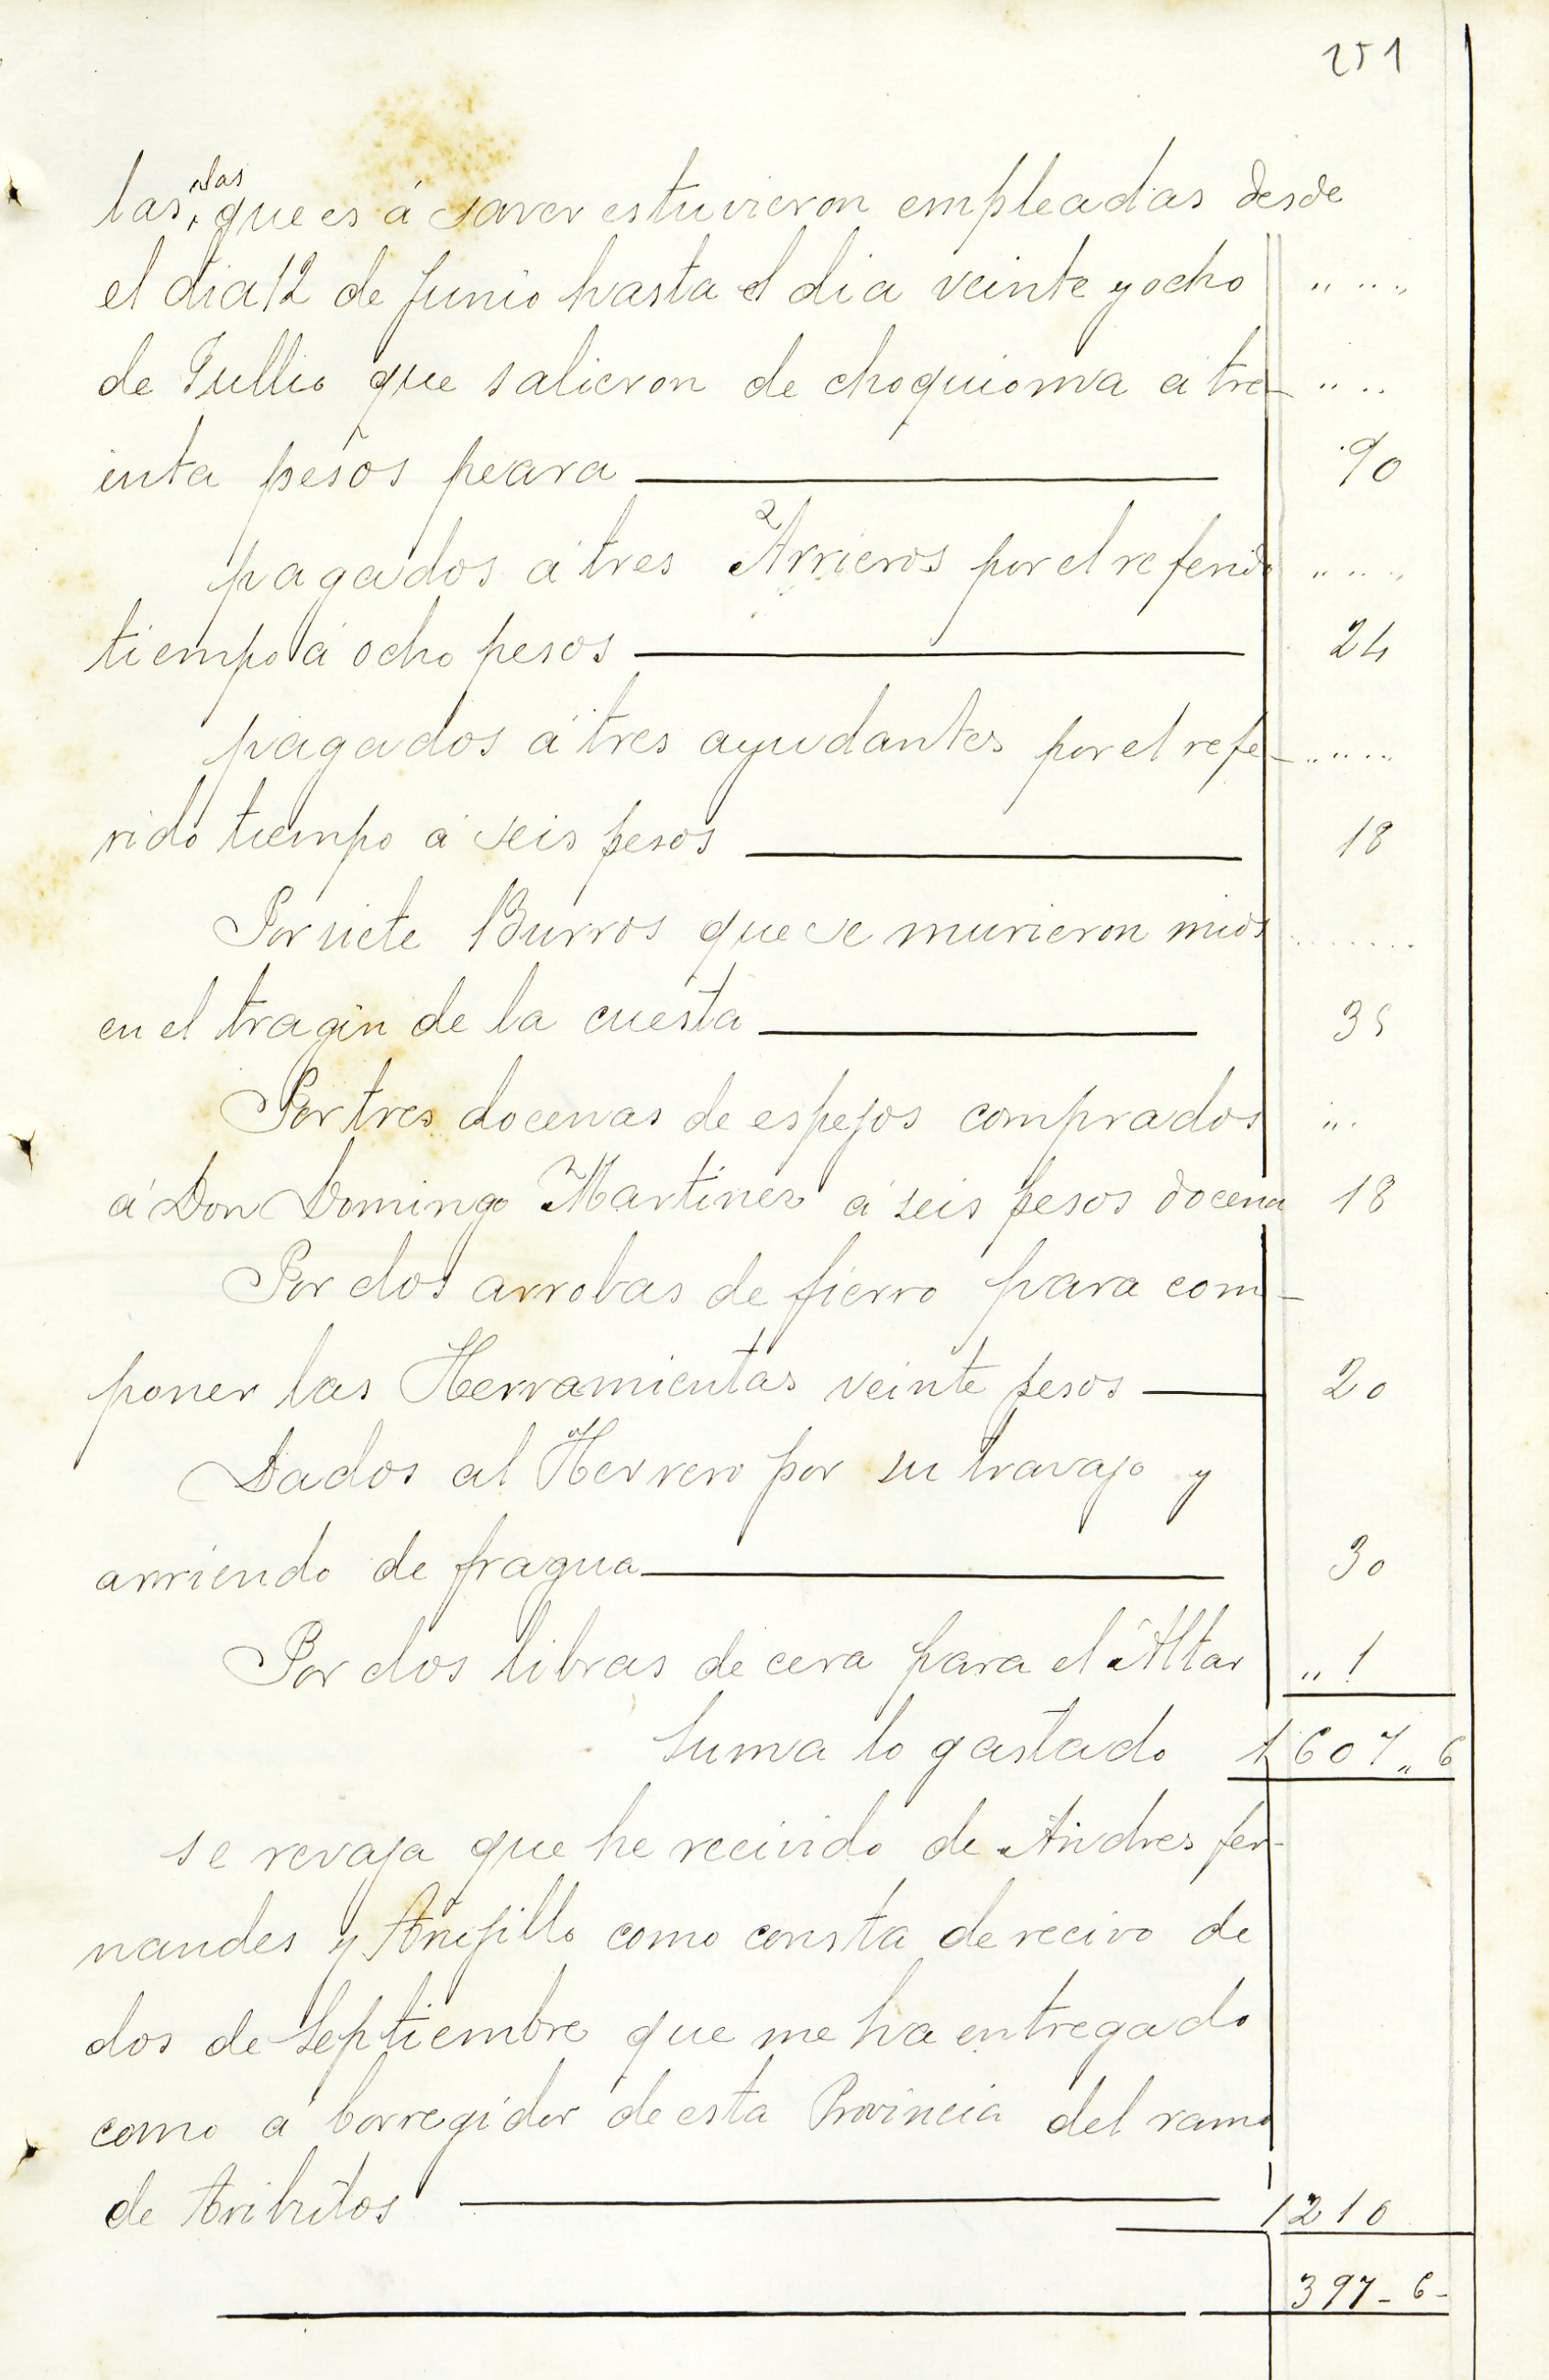 251
las
las, que es á saver estuvieron empleadas desde
el dia 12 de Junio hasta el dia veinte y ocho " " "
de Jullio que salieron de choquioma a tre- " "
inta pesos peara 90
pagados á tres Arrieros por el referido " " "
tiempo á ocho pesos 24
pagados á tres ayudantes por el refe- " " "
rido tiempo á seis pesos 18
Por siete Burros que se murieron mios
en el tragin de la cuesta 35
Por tres docenas de espejos comprados "
á Don Domingo Martinez á seis pesos docena 18
Por dos arrobas de fierro para com-
poner las Herramientas veinte pesos 20
Dados al Herrero por su travajo y
arriendo de fragua 30
Por dos libras de cera para el Altar " 1
Suma lo gastado 1607 " 6
se revaja que he recivido de Andres fer-
nandes y como consta de recivo de
dos de Septiembre que me ha entregado
como á Corregidor de esta Provincia del ramo
de tributos 1210
397-6-